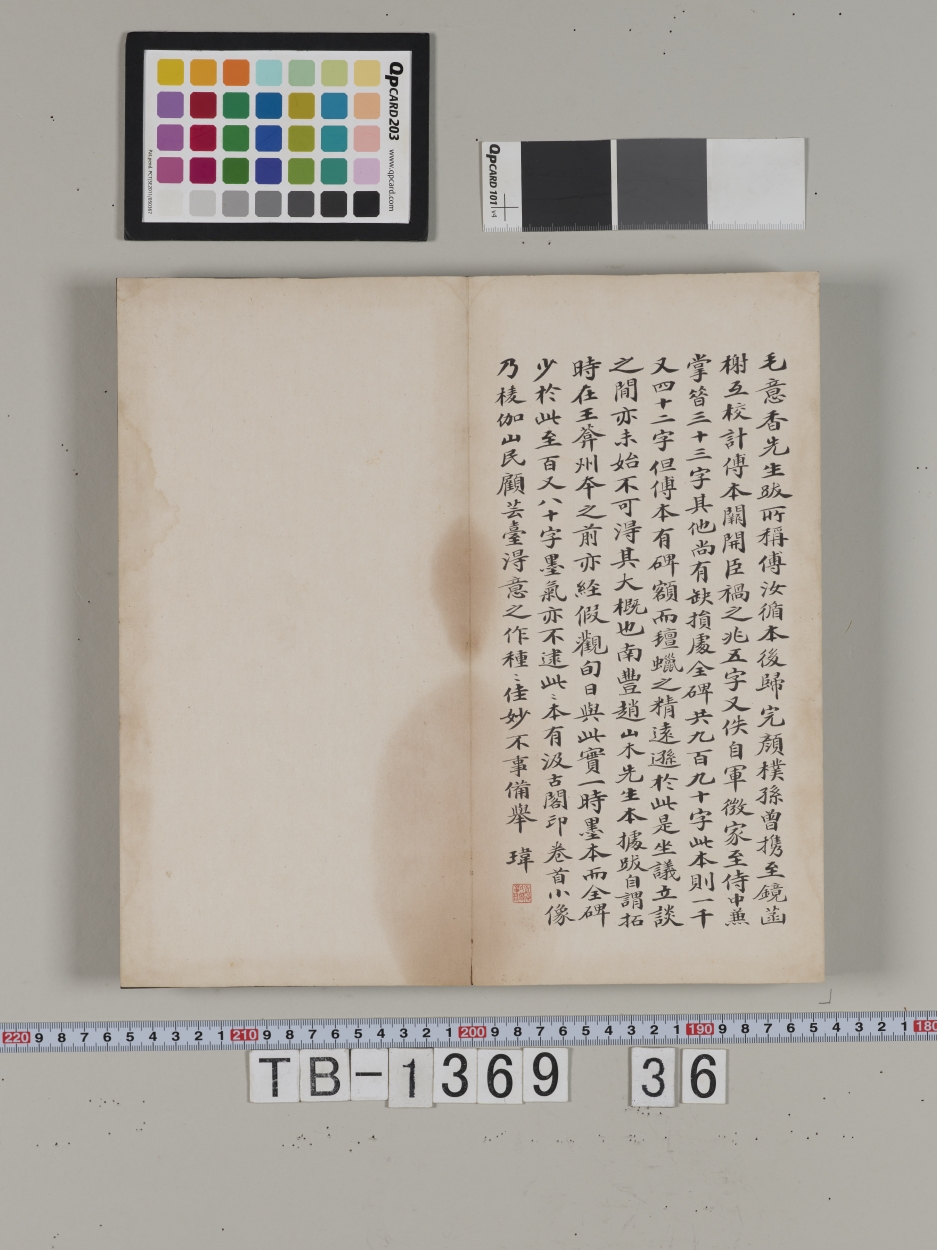 QPCARD 203 www.qpcard.com
QPCARD 101 v4
毛意香先生跋所稱傅汝循本後歸完顏樸孫曾攜至鏡菡
榭互校計傅本闕開臣禍之兆五字又佚自軍徵家至侍中兼
掌簪三十三字其他尚有缺損處全碑共九百九十字此本則一千
又四十二字但傅本有碑額而氊蠟之精遠遜於此是坐議立談
之間亦未始不可淂其大概也南豐趙山木先生本據跋自謂拓
時在王弇州夲之前亦経假觀旬日與此實一時墨本而全碑
少於此至百又八十字墨氣亦不逮此〻本有汲古閣印卷首小像
乃棱伽山民顧芸臺淂意之作種〻佳妙不事備舉 瑋
220 9 8 7 6 5 4 3 2 1 210 9 8 7 6 5 4 3 2 1 200 9 8 7 6 5 4 3 2 1 190 9 8 7 6 5 4 3 2 1 180
TB-1369 36